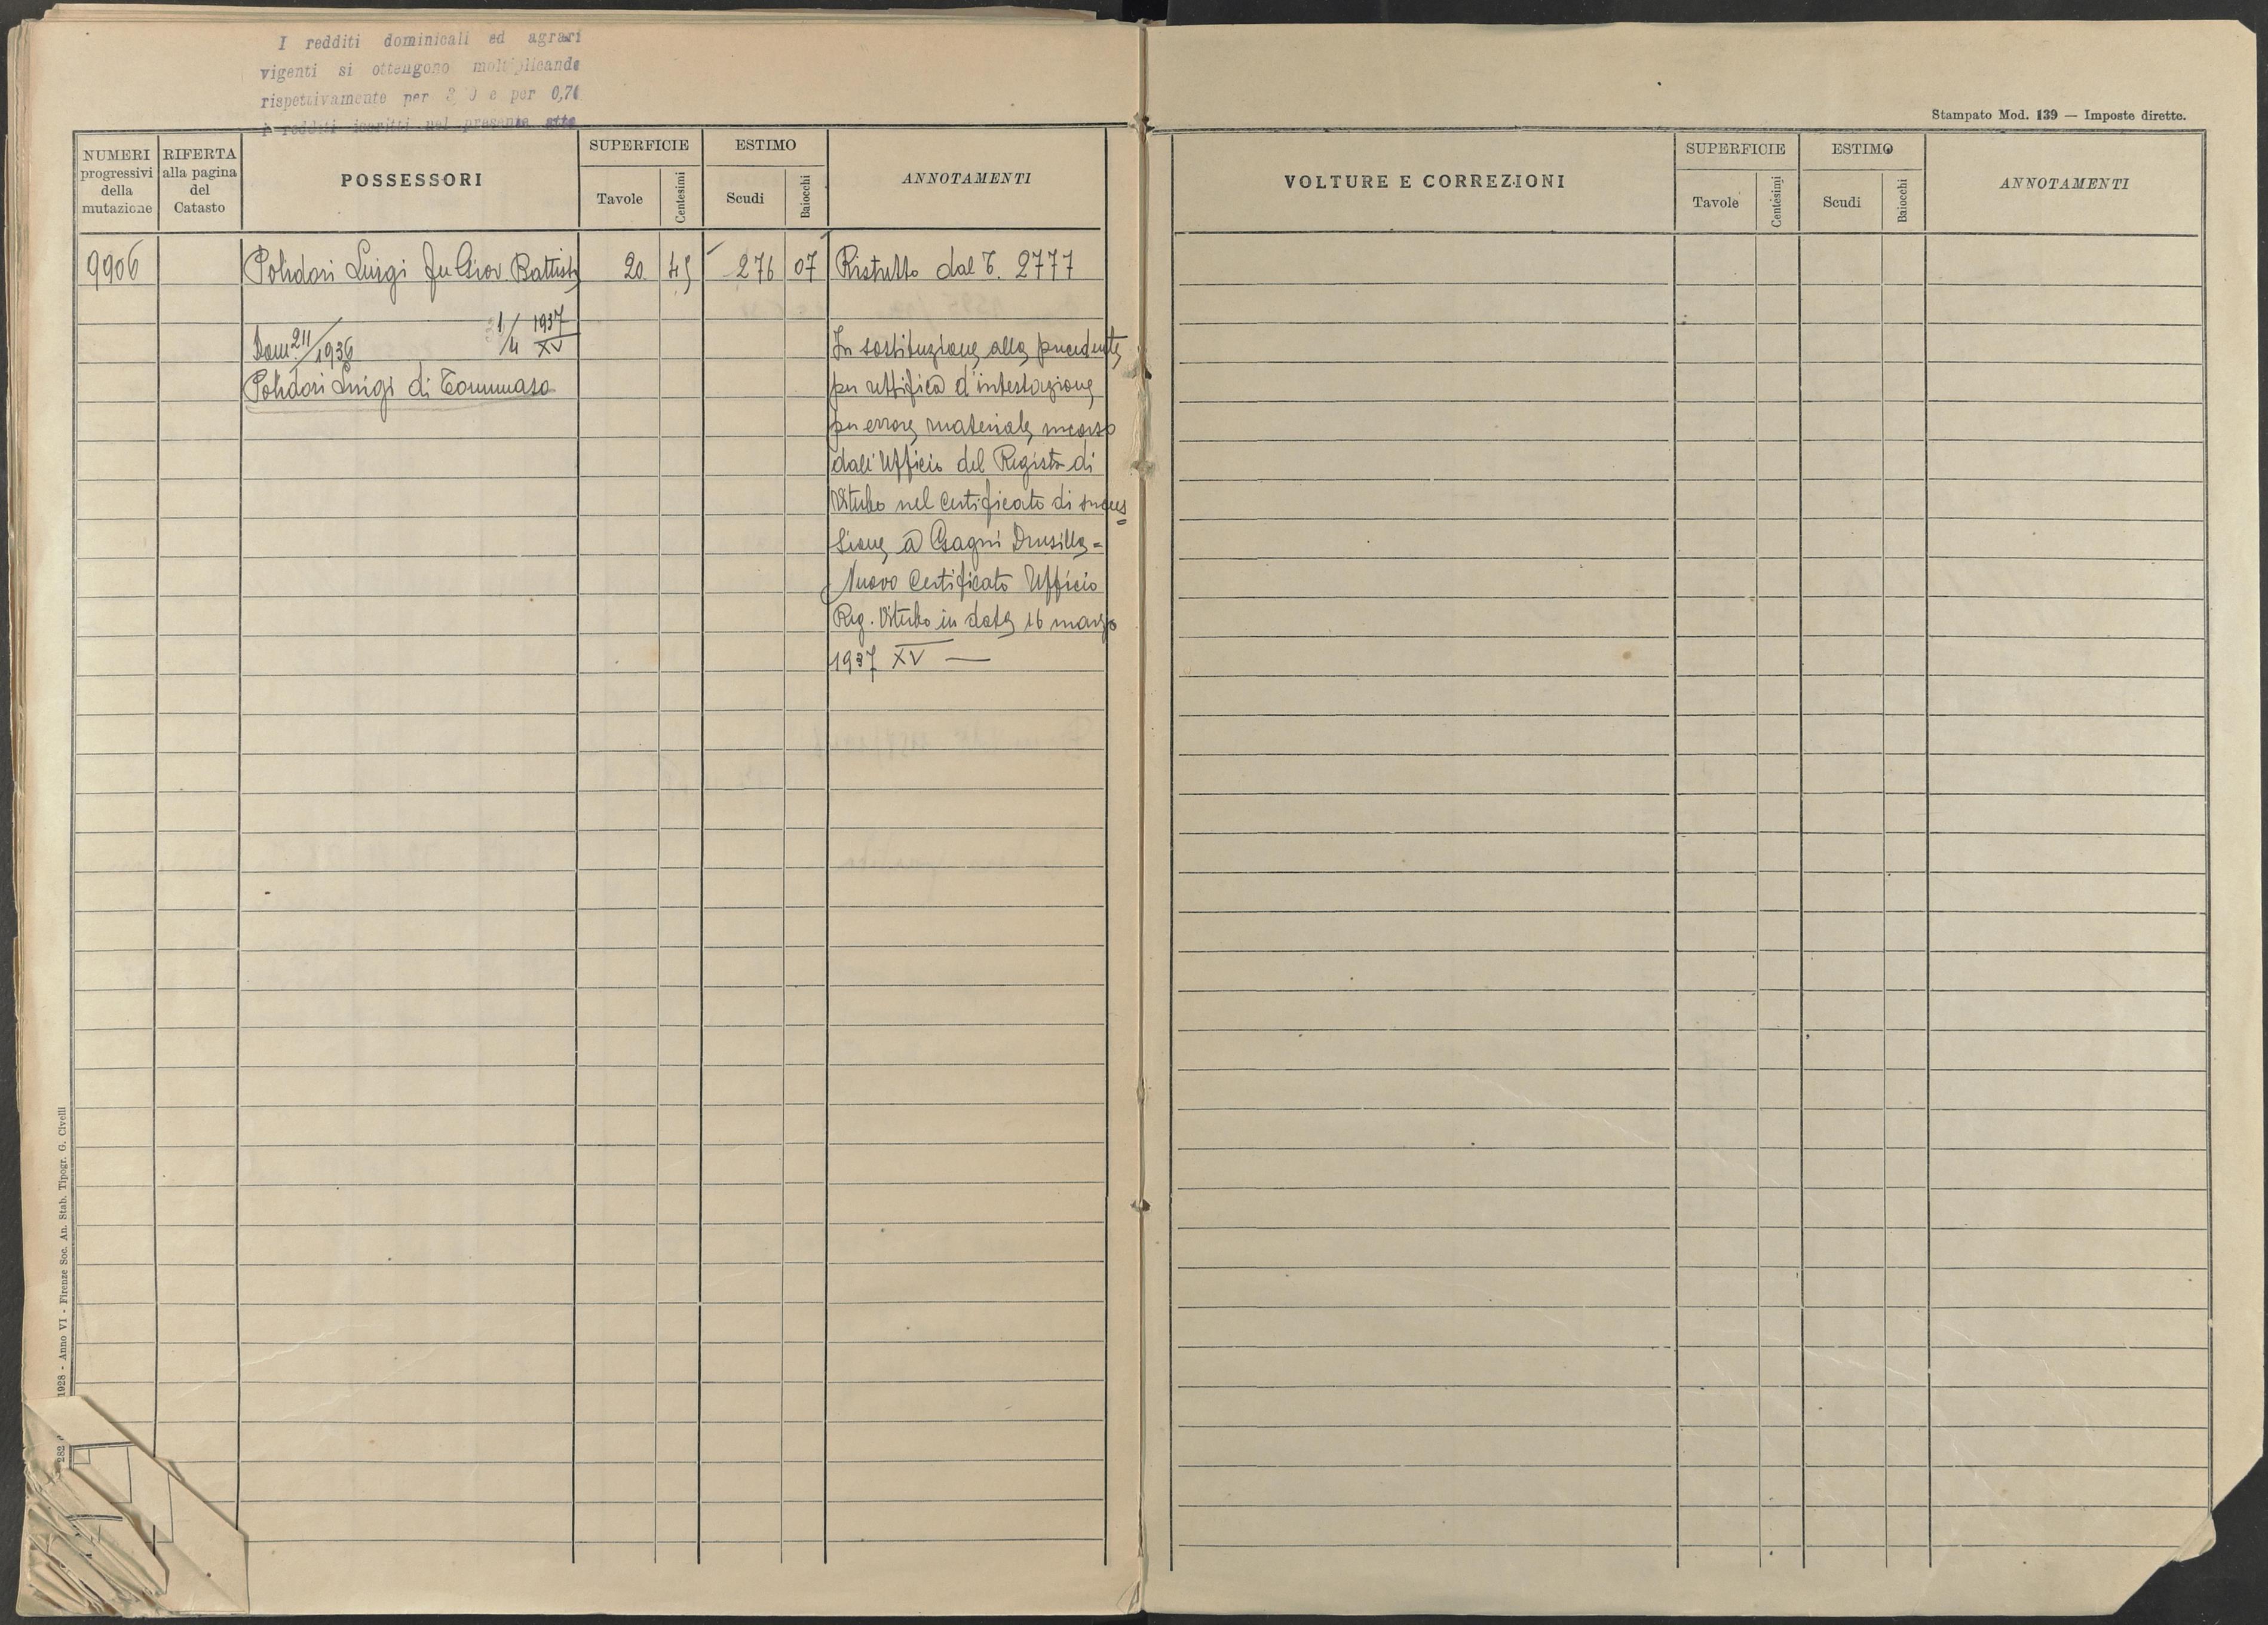 I redditi dominicali ed agrari
vigenti si ottengono moltiplicando
rispettivamente per e per 0,70
i redditi iscritti nel presente atto
NUMERI progressivi della mutazione
RIFERTA alla pagina del Catasto
POSSESSORI
SUPERFICIE
Tavole
Centesimi
ESTIMO
Scudi
Baiocchi
ANNOTAMENTI
9906 Polidori Luigi fu Giov. Battista 20 45 276 07 Ristretto dal T. 2777
Dom. 211/1936 1/4 1937 XV
Polidori Luigi di Tommaso
In sostituzione alla precedente
per rettifica d'intestazione
per errore materiale incorso
dall'Ufficio del Registro di
Viterbo nel certificato di succes=
sione a Gagni Drusilla =
Nuovo Certificato Ufficio
Reg. Viterbo in data 16 marzo
1937 XV —
1928 - Anno VI - Firenze Soc. An. Stab. Tipogr. G. Civelli
Stampato Mod. 139 — Imposte dirette.
VOLTURE E CORREZIONI
SUPERFICIE
Tavole
Centesimi
ESTIMO
Scudi
Baiocchi
ANNOTAMENTI